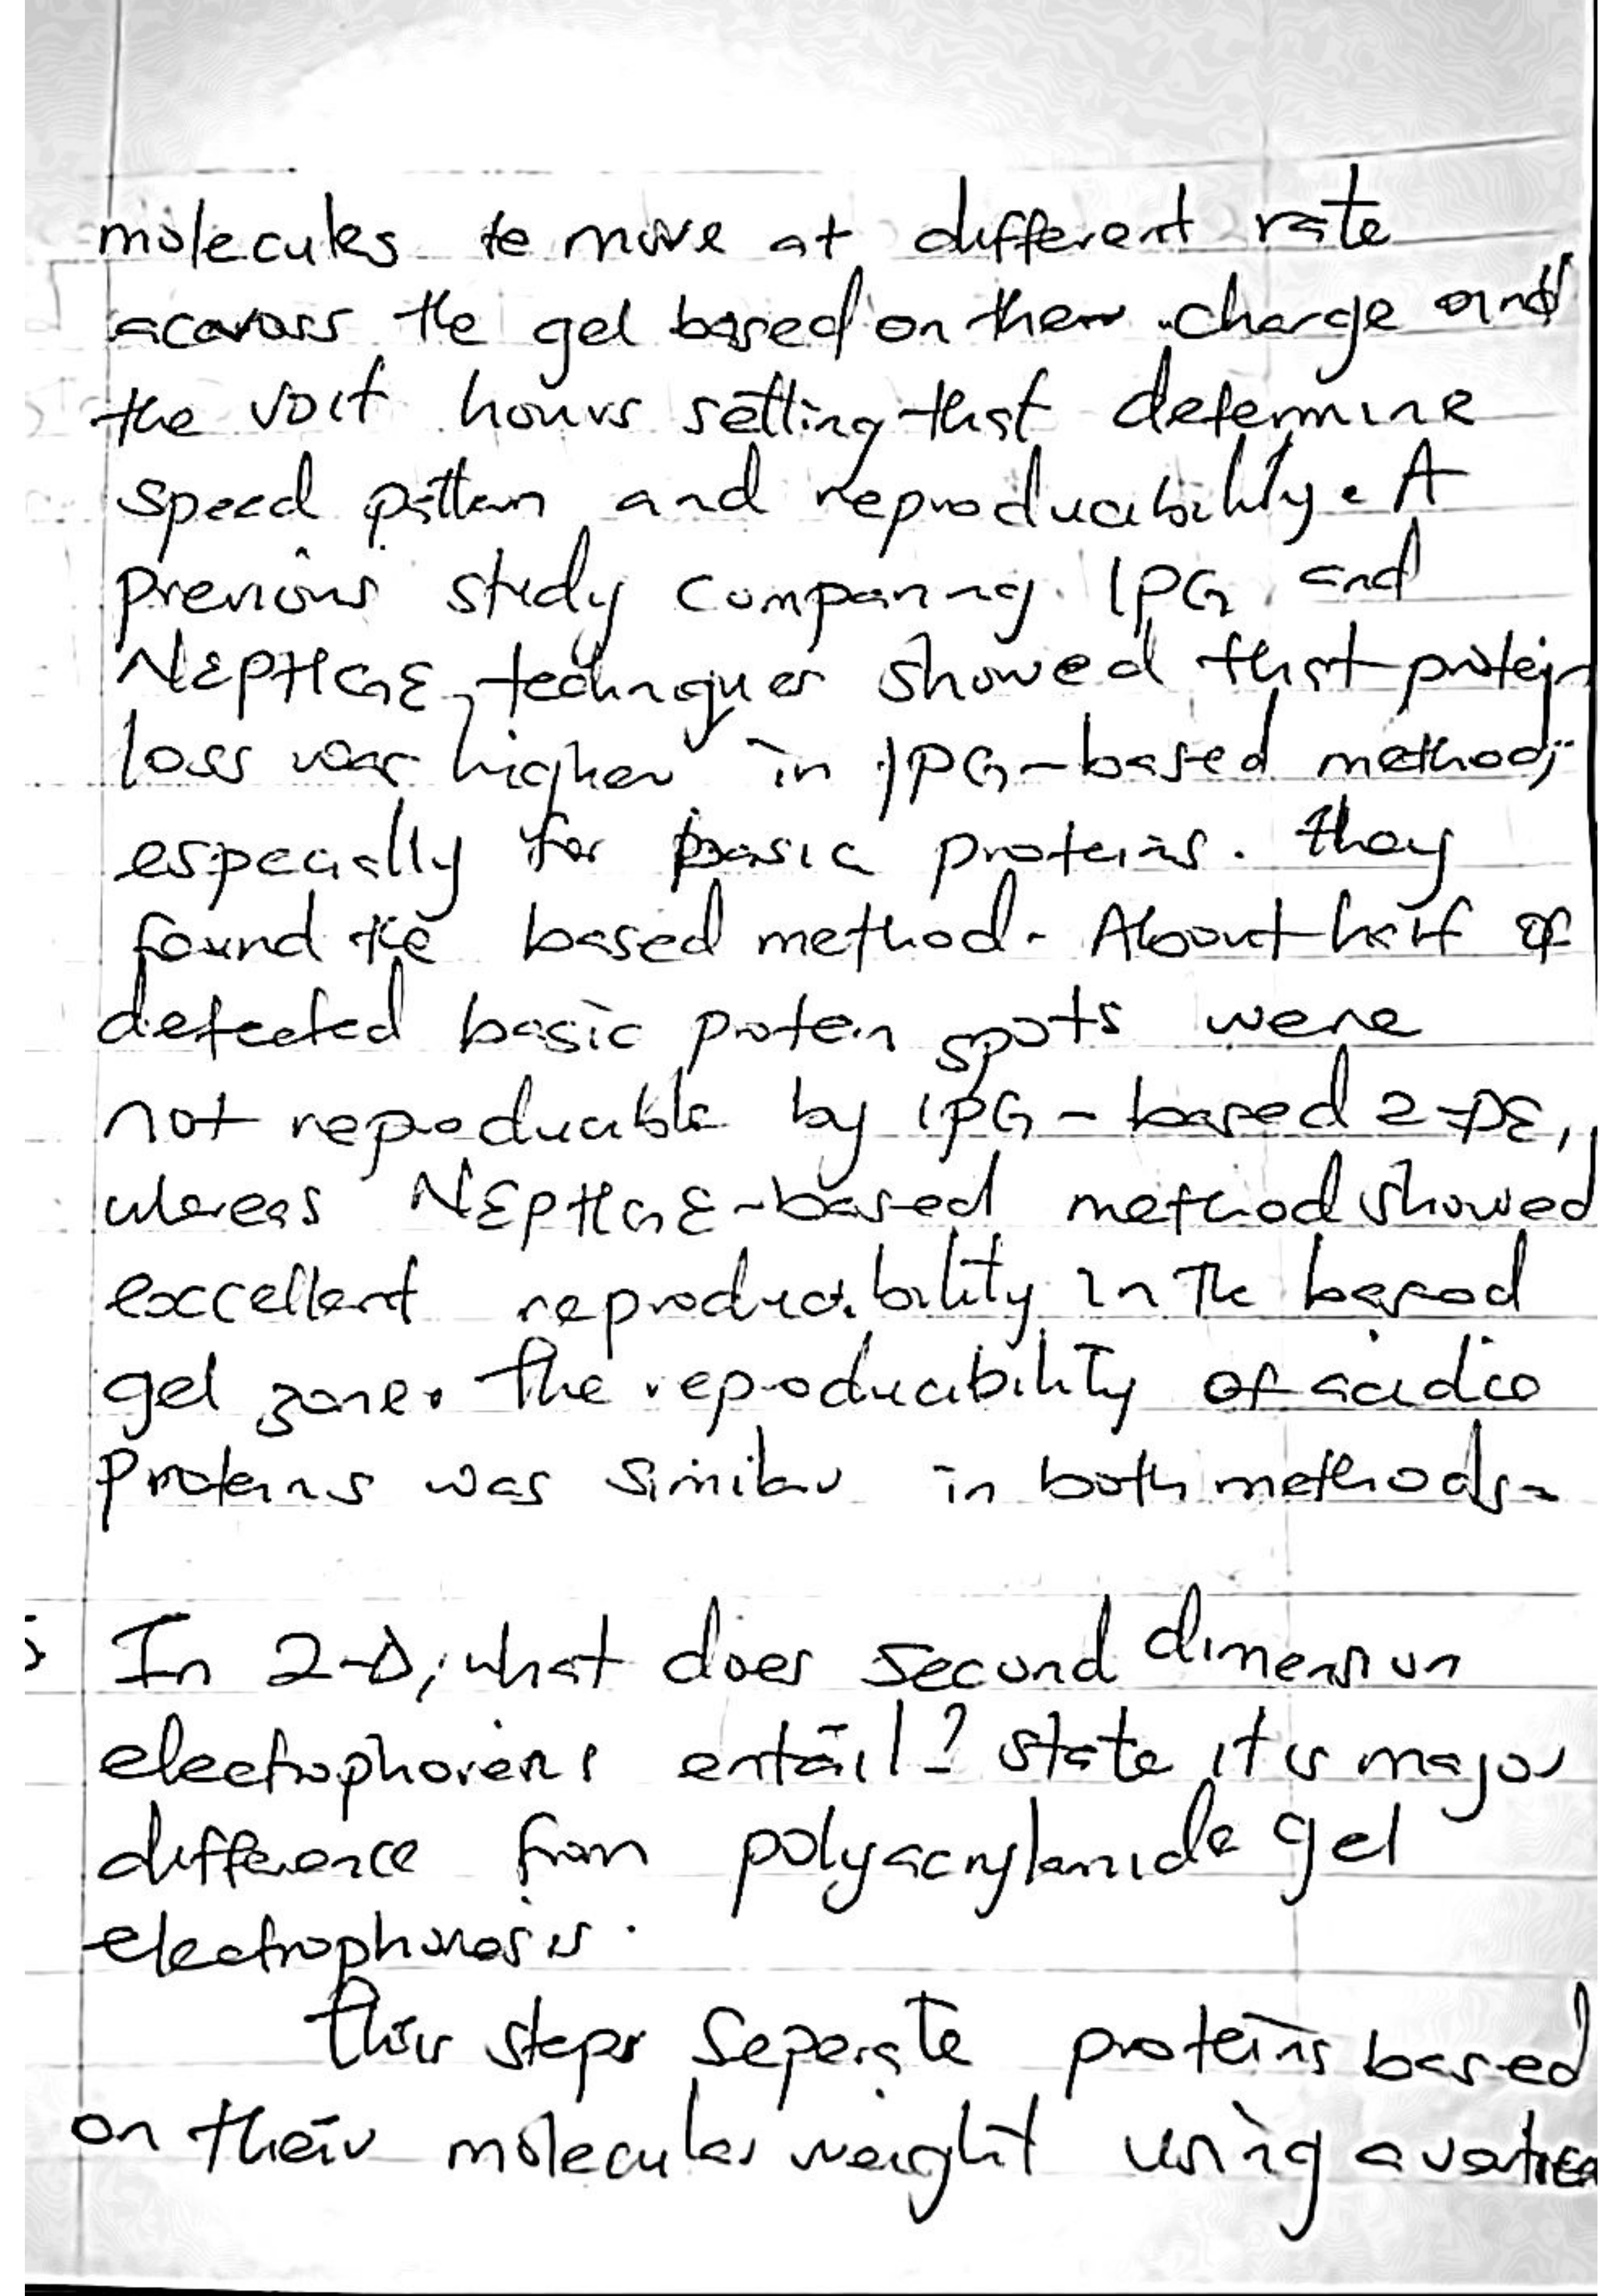 molecules to move at different rate
acavoss the gel based on their charge and
the volt hours setting that determine
speed pattern and reproducibility. A
previous study comparing IPG and
NEPHGE techniques showed that protein
loss was higher in IPG-based method,
especially for basic proteins. they
found the based method. About half of
detected basic protein spots were
not reproducible by IPG-based 2-DE,
whereas NEPHGE-based method showed
excellent reproducibility in the
gel zone. The reproducibility of acidic
proteins was similar in both methods.
In 2-D, what does second dimension
electrophoresis entail? state it is major
difference from polyacrylamide gel
electrophoresis.
This steps Seperate proteins based
on their molecular weight using a